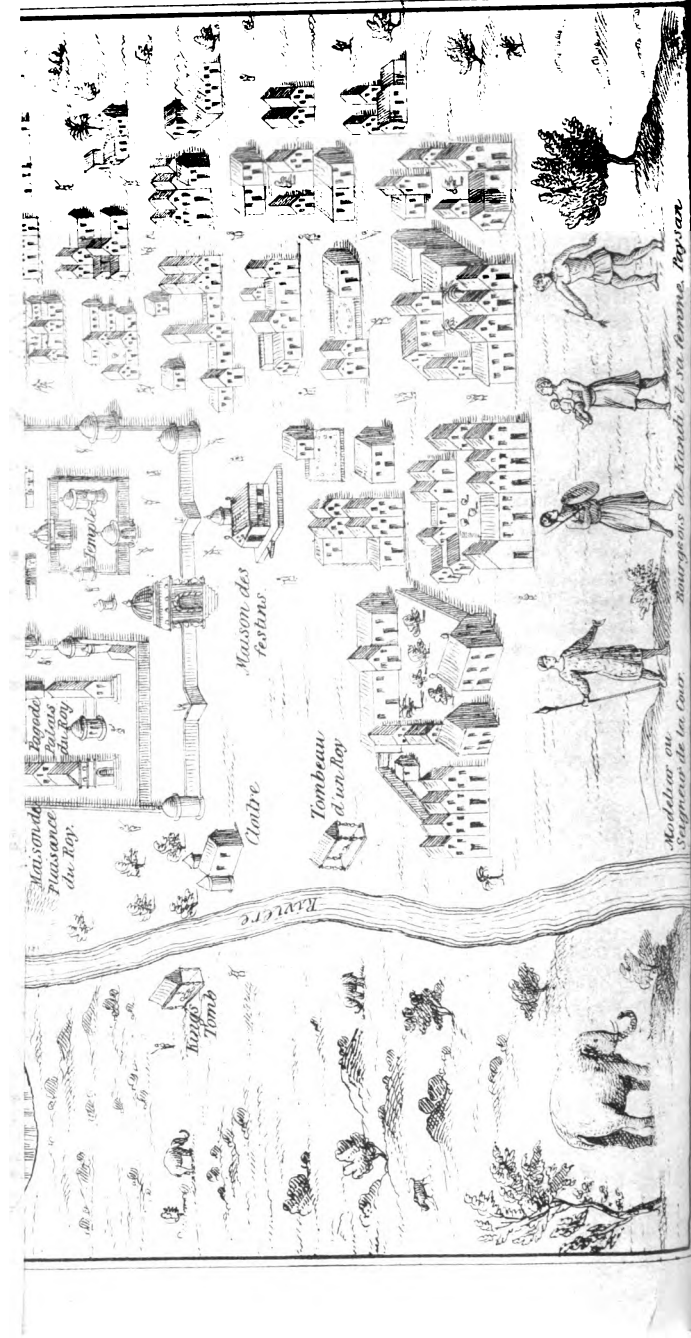 Maison de
Plaisance
du Roy.
Pagode
Palais
du Roy
Temple
Maison des
festins
Cloitre
Tombeau
d'un Roy
Kings
Tomb
Riviere
Modeliar ou
Seigneur de la Cour
Bourgeois de Kandi et sa femme. Paysan